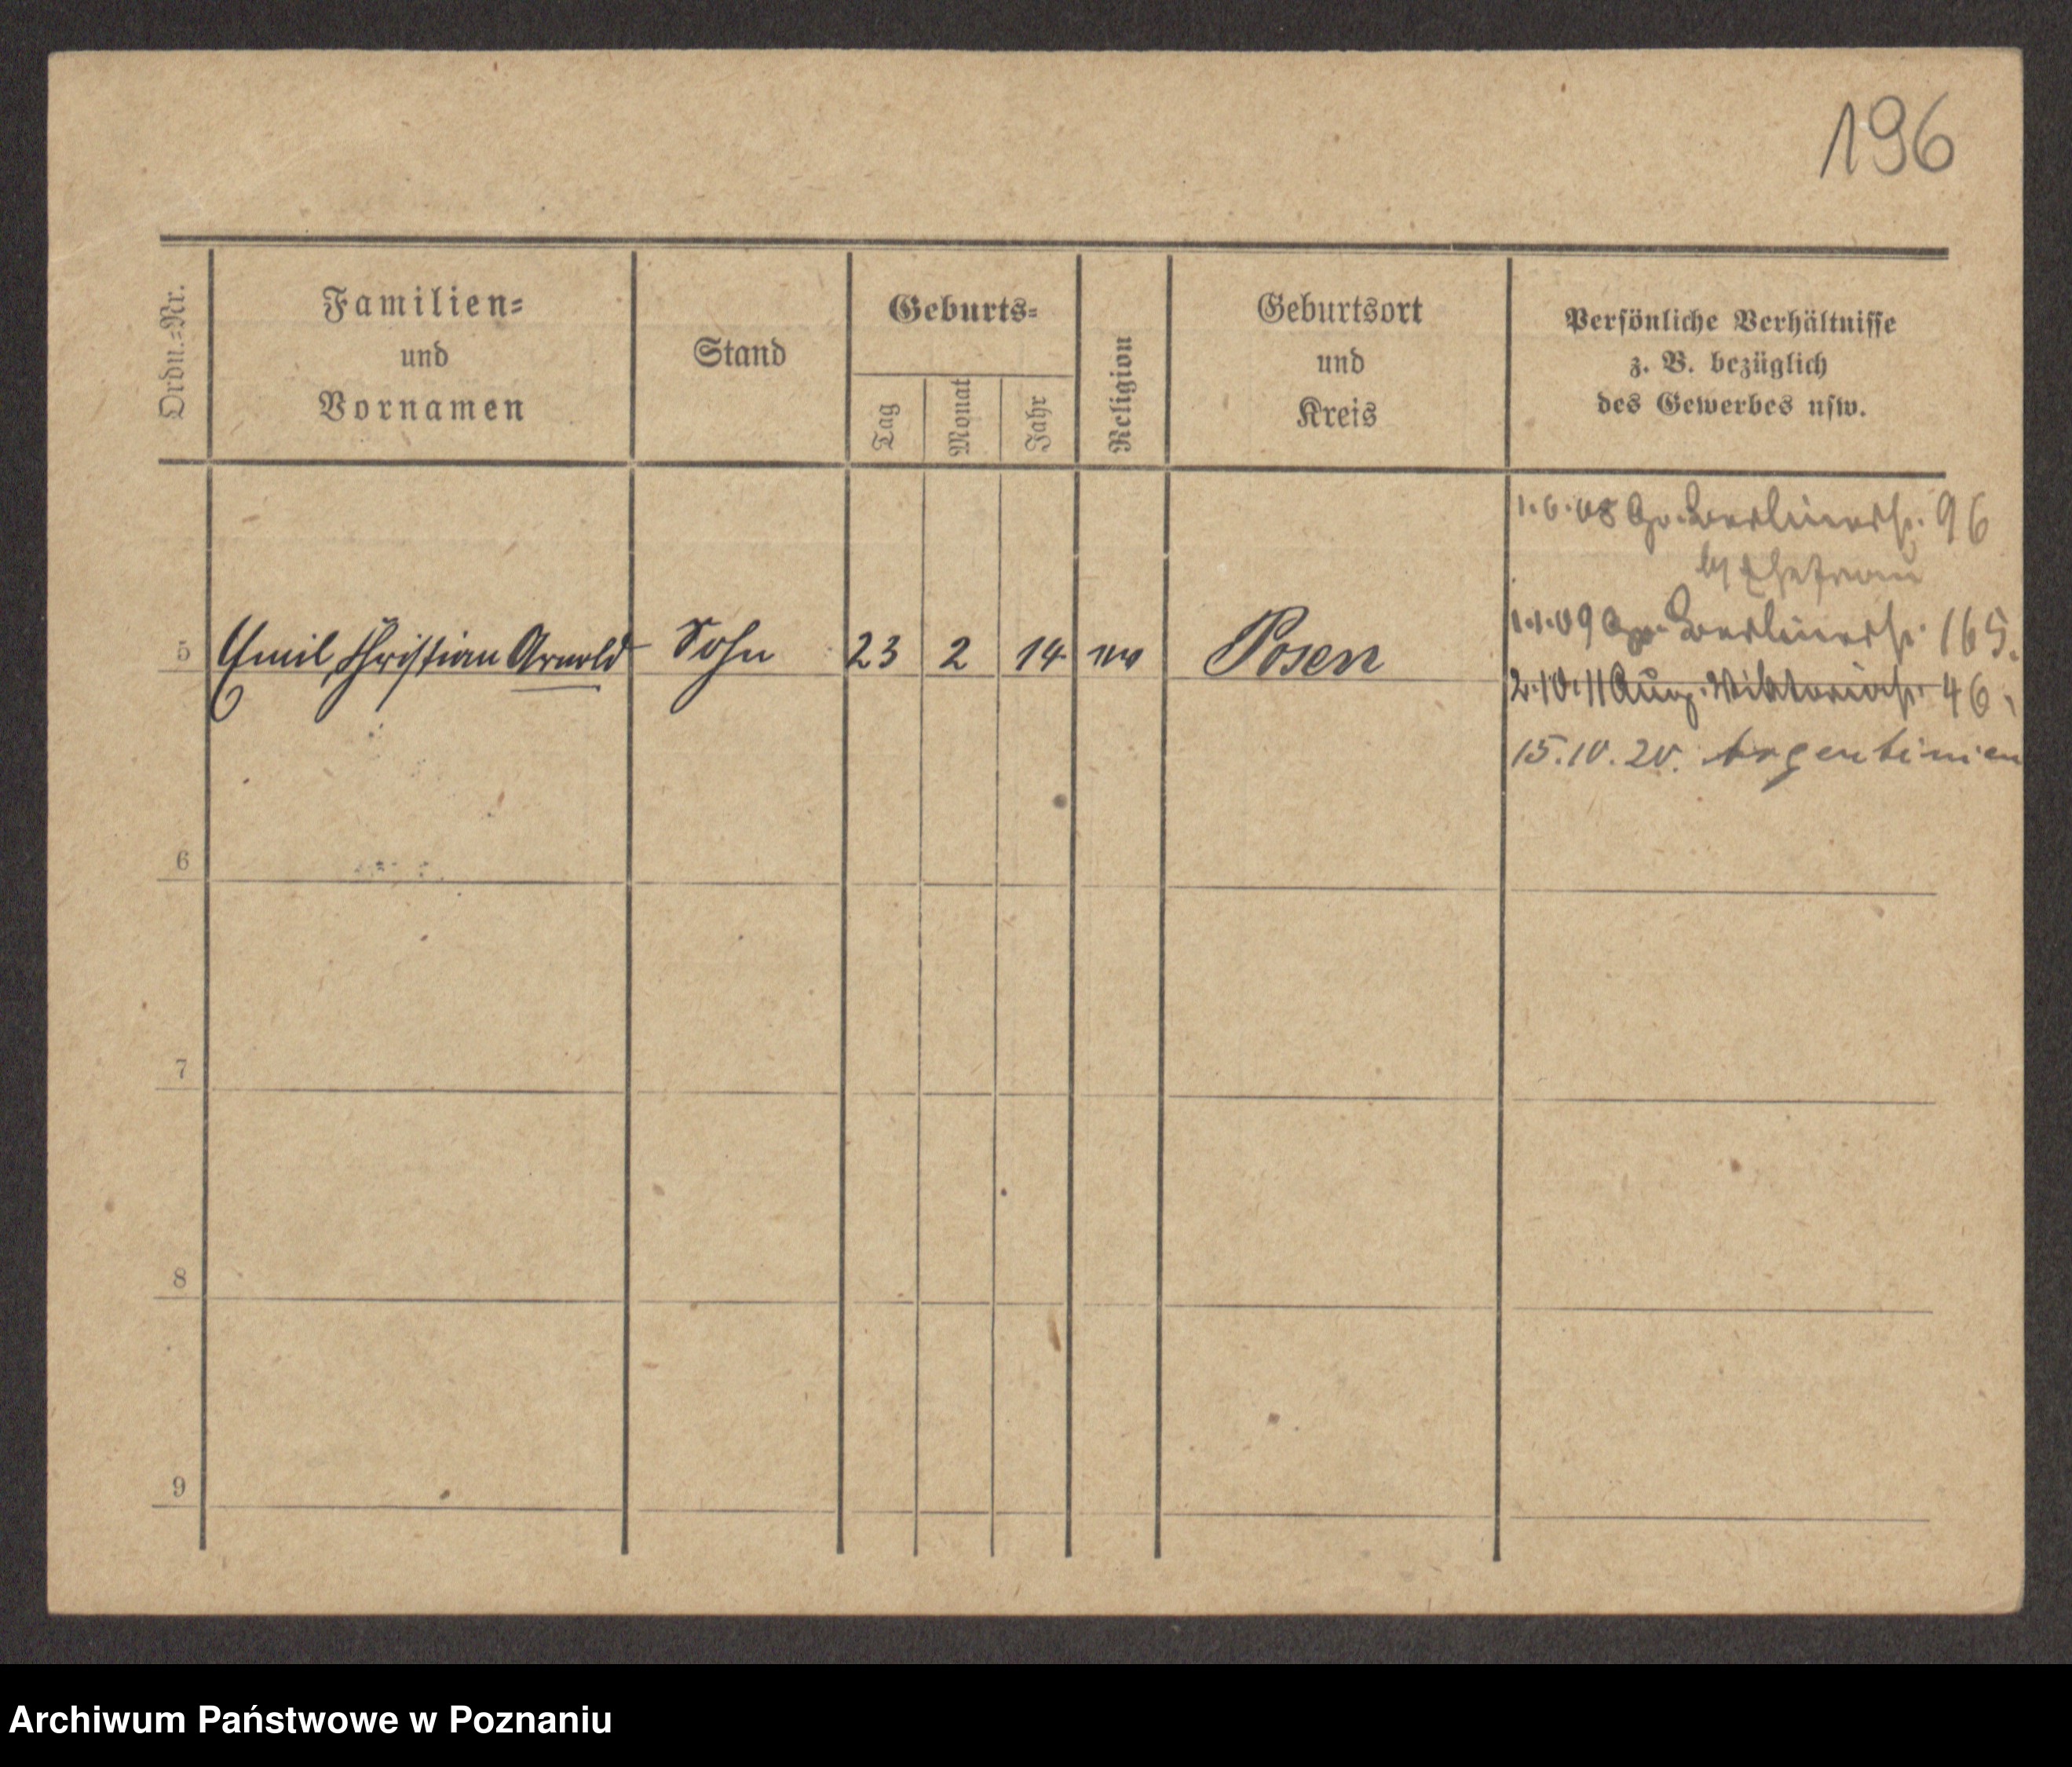 196
Ordn.=Nr.
Familien=
und
Vornamen
Stand
Geburts=
Tag
Monat
Jahr
Religion
Geburtsort
und
Kreis
Persönliche Verhältnisse
z. B. bezüglich
des Gewerbes usw.
1.6.08 Gr. Berlinerstr. 96
by Ehefrau
5 Emil Christian Arnold Sohn 23 2 14 ev Posen
1.1.09 Gr. Berlinerstr. 165.
2.10.11 Aug. Viktoriastr. 46.
15.10.20. Argentinien
6
7
8
9
Archiwum Państwowe w Poznaniu